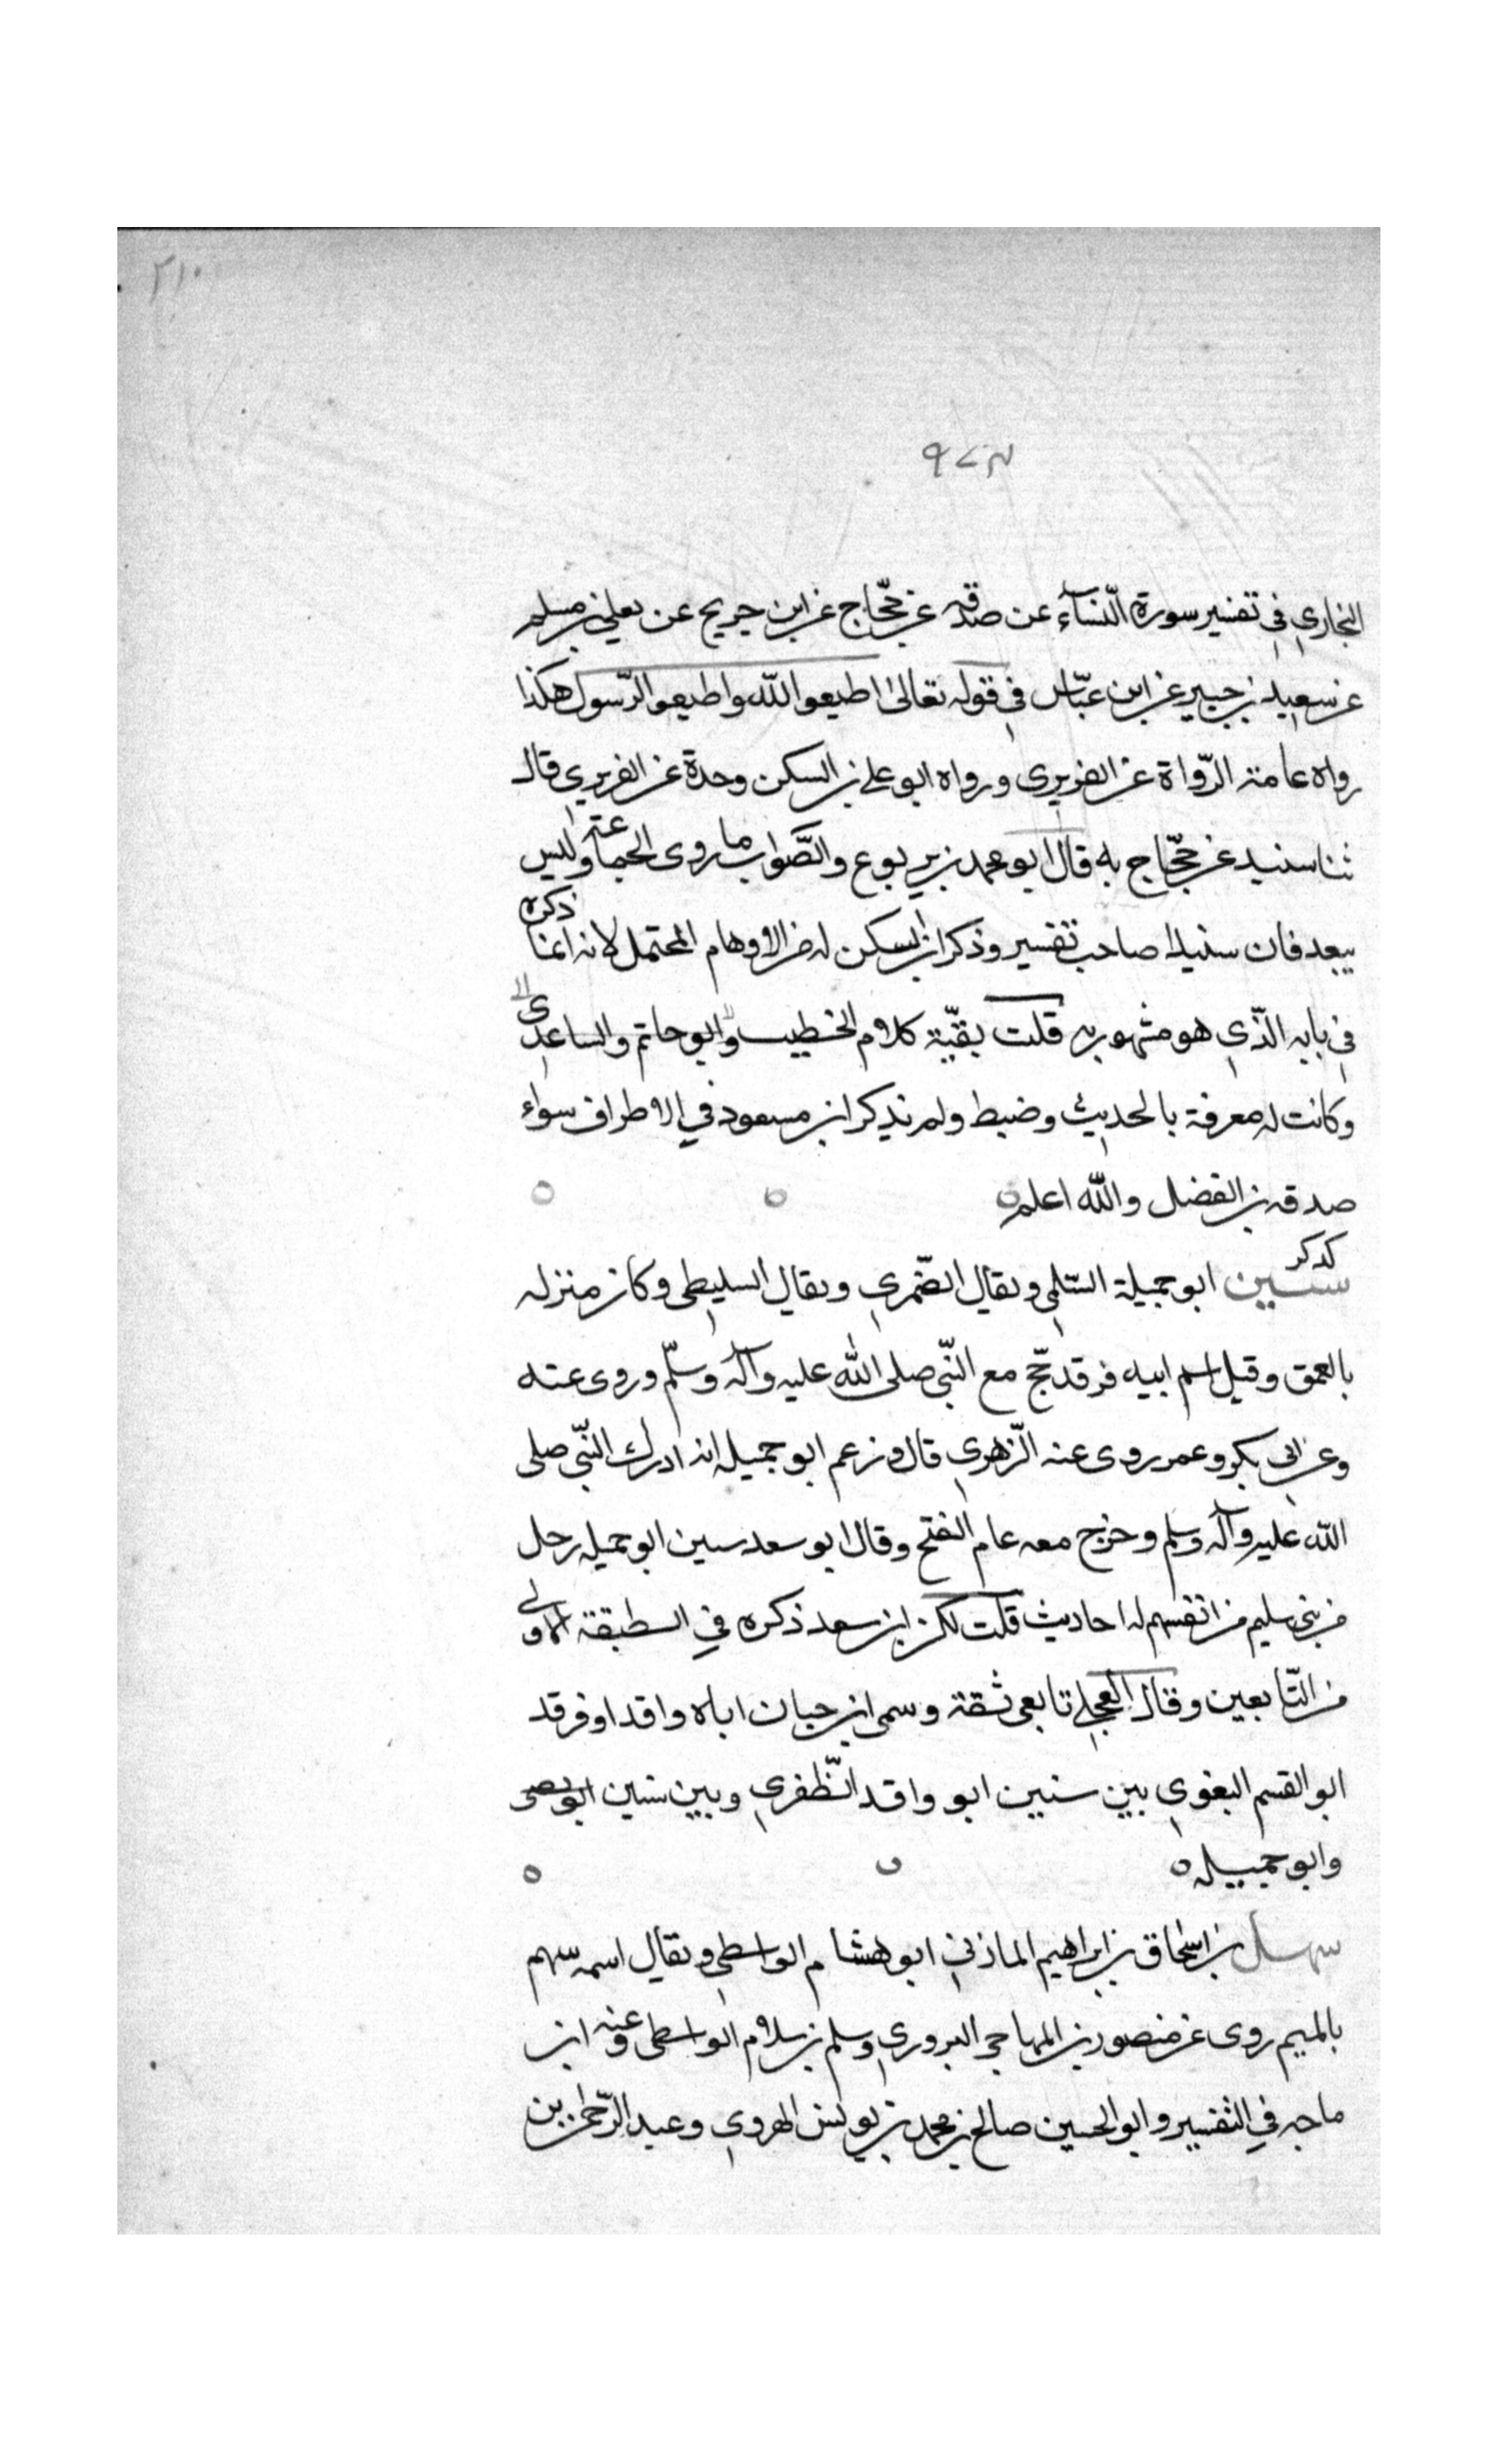 ٢١٠
٩٧٣
البخاري في تفسير سورة النّسآء عن صدقه عن حجّاج عن ابن جريج عن يعلي بن مسلم
عن سعيد بن جبير عن ابن عبّاس في قوله تعالى اطيعوا الله واطيعو الرّسول هكذا
رواه عامة الرّواة عن الفربري ورواه ابو علي بن السكن وحدة عن الفربري قال
ثنا سنيد عن حجّاج به قال ابو محمد بن يربوع والصّواب ما روى الجماعة وليس
ببعد فان سنيدا صاحب تفسير وذكر ابن السكن له من الاوهام المحتمل لانه انما ذكره
في بابه الذّي هو مشهور به قلت بقيّة كلام الخطيب وابو حاتم والساعدى
وكانت له معرفة بالحديث وضبط ولم يذكر ابن مسعود في الاطراف سواء
صدقه بن الفضل والله اعلم
كد كر
سنين ابو جميلة السّلمي ويقال الضّمري ويقال السليطي وكان منزله
بالعمق وقيل اسم ابيه فرقد حّج مع النّبي صلى الله عليه وآله وسلّم وروى عنه
وعن ابي بكر وعمر روى عنه الزّهري قال وزعم ابو جميله انه ادرك النّبي صلى
الله عليه وآله وسلم وخرج معه عام الفتح وقال ابو سعد سين ابو جميله رجل
من بني سليم من انفسهم له احاديث قلت لكن ابن سعد ذكره في الطبقة الاولى
من التّابعين وقال العجلي تابعي ثقة وسمى ابن حبان اباه واقدا وفرقد
ابو القسم البغوي بين سنين ابو واقد الظّفري وبين سنين
وابو جميله
سهل بن اسحاق بن ابراهيم المازني ابو هشام الواسطي ويقال اسمه سهم
بالميم روى عن منصور بن المهاجر البروري وسلم بن سلام الواسطي وعنه ابن
ماجه في التفسير وابو الحسين صالح بن محمد بن يونس الهروي وعبد الرّحمن بن